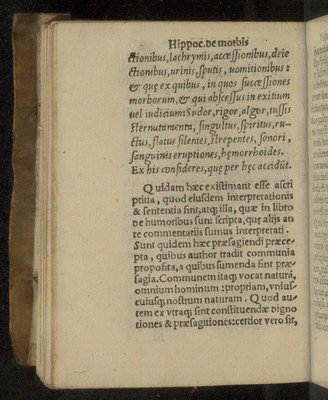 Hippoc. de morbis
ctionibus, lachrymis, accessionibus, deie
ctionibus, urinis, sputis, uomitionibus:
& quę ex quibus, in quos successiones
morborum, & qui abscessus in exitium
uel iudicium: Sudor, rigor, algor, tussis
sternutamenta, singultus, spiritus, ru-
ctus, flatus silentes, strepentes, sonori,
sanguinis eruptiones, hęmorrhoides.
Ex his consideres, quę per hęc accidūt.
Quidam hæc existimant esse ascri
ptitia, quod eiusdem interpretationis
& sententia sint, atq; illa, quæ in libro
de humoribus sunt scripta, quę aliis an
te commentariis sumus interpretati.
Sunt quidem hæc præsagiendi præce-
pta, quibus author tradit communia
proposita, a quibus sumenda sint præ-
sagia. Communem itaq; vocat naturã,
omnium hominum: propriam, vnius-
cuiusq; nostrum naturam. Quod au-
tem ex vtraq; sint constituendæ digno
tiones & præsagitiones: certior vero sit,